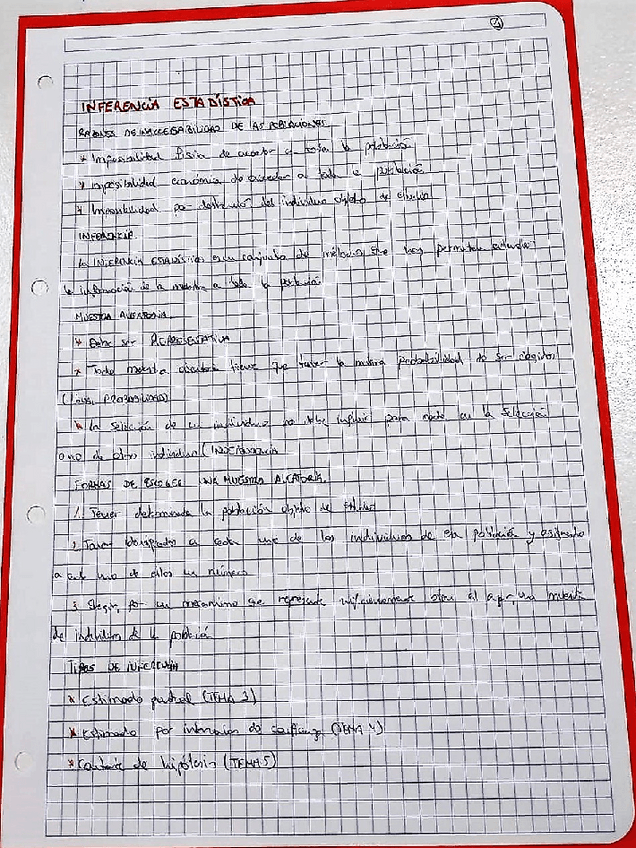 INFERENCIA ESTADÍSTICA
RAZONES DE INACCESIBILIDAD DE LAS POBLACIONES
* Imposibilidad física de acceder a toda la población
* imposibilidad económica de acceder a toda la población
* Imposibilidad por destrucción del individuo objeto de estudio
INFERENCIA
La INFERENCIA ESTADÍSTICA es un conjunto de métodos que nos permiten extender
la información de la muestra a toda la población
MUESTRA ALEATORIA
* Debe ser REPRESENTATIVA
* Toda muestra aleatoria tiene que tener la misma probabilidad de ser elegida
(IGUAL PROBABILIDAD)
* La selección de un individuo no debe influir para nada en la selección
o no de otro individuo (INDEPENDENCIA
FORMAS DE ESCOGER UNA MUESTRA ALEATORIA
1. Tener determinada la población objeto de estudio
2. Tener a cada uno de los individuos de esa población y asignarle
a cada uno de ellos un número
3. Elegir, por un mecanismo que represente el azar, una muestra
de individuos de la población
TIPOS DE INFERENCIA
* Estimación puntual (TEMA 3)
* Estimación por intervalos de confianza (TEMA 4)
* Contraste de hipótesis (TEMA 5)